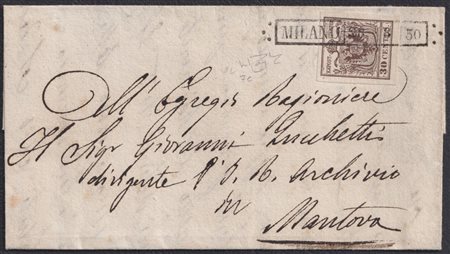 MILANO 30
30 CENTES
All'Egregio Ragioniere
Il Sigr Giovanni Lucchetti
dirigente l'I. R. Archivio
in
Mantova